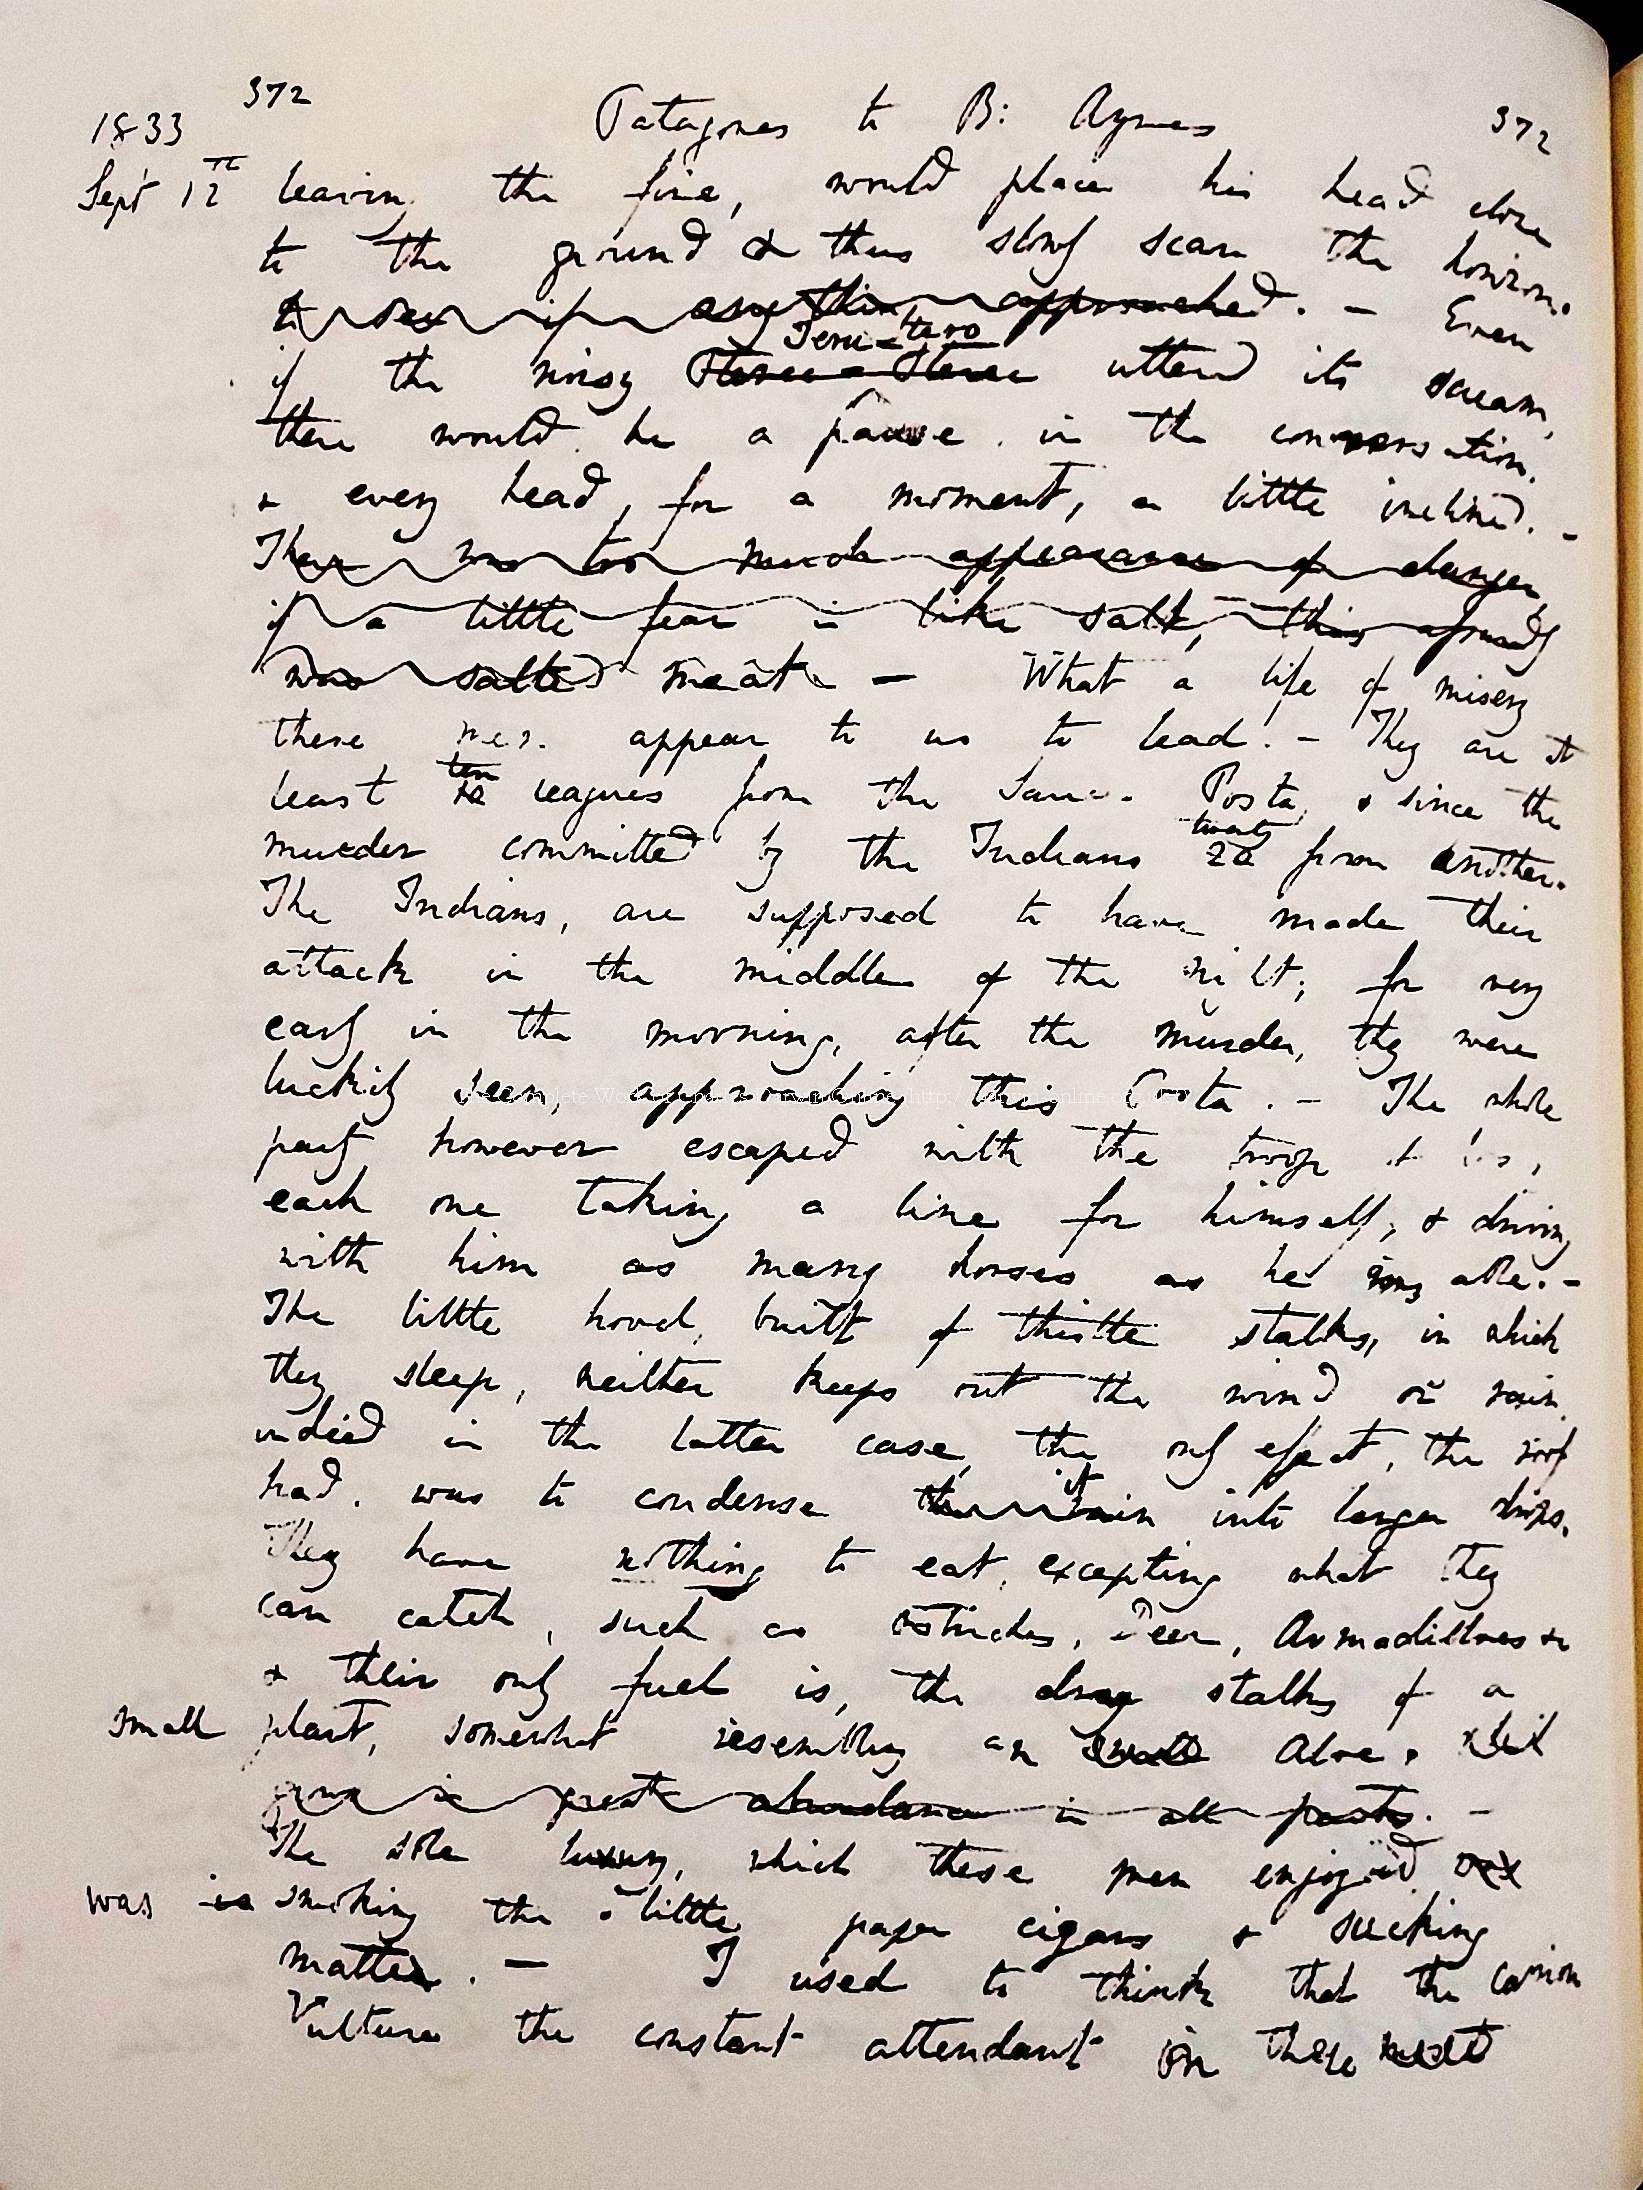 372 Patagones to B: Ayres 372
1833
Sept 12th leaving the fire, would place his head close
to the ground & thus slowly scan the horizon.
to see if any thing approached. — Even
Teru-tero
if the noisy uttered its scream,
there would be a pause in the conversation,
& every head, for a moment, a little inclined. —
There was too much appearance of danger
if a little fear is like salt, this already
was salted meat — What a life of misery
these men appear to us to lead. — They are at
ten
least 10 leagues from the Sauce Posta, & since the
twenty
murder committed by the Indians 20 from another.
The Indians, are supposed to have made their
attack in the middle of the night; for very
early in the morning, after the murder, they were
luckily seen, approaching this Posta. — The whole
party however escaped with the troop of
each one taking a line for himself, & driving
with him as many horses as he was able. —
The little hovel, built of thistle stalks, in which
they sleep, neither keeps out the wind or rain
indeed in the latter case, the only effect, the roof
it
had, was to condense the rain into larger drops.
They have nothing to eat, excepting what they
can catch, such as ostriches, Deer, Armadilloes &
& their only fuel is, the dry stalks of a
small plant, somewhat resembling an Aloe.
grows in great abundance in all parts. —
The sole luxury, which these men enjoyed
was is smoking the little paper cigars & sucking
mattee. — I used to think that the carrion
Vultures the constant attendant on these